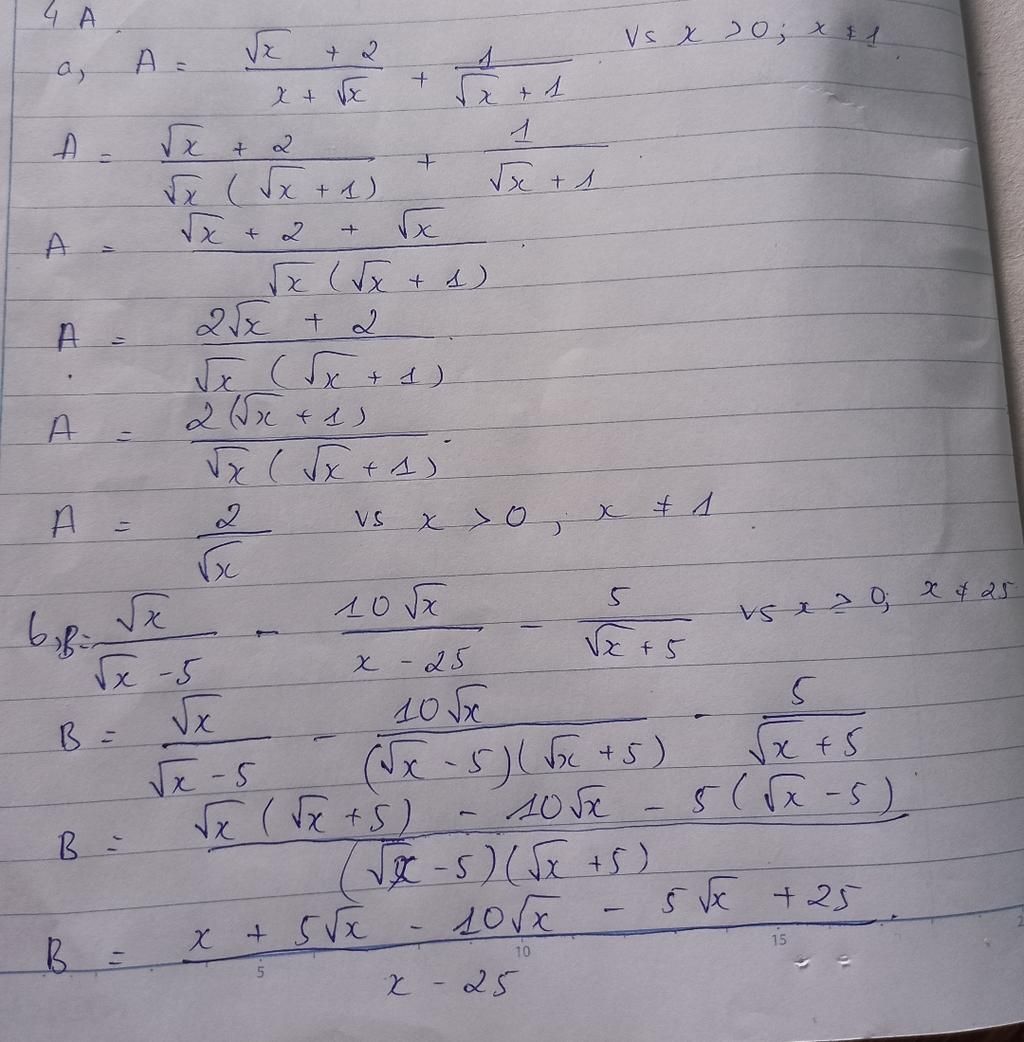 4 A
a, A = (√x + 2)/(x + √x) + 1/(√x + 1) vs x > 0; x ≠ 1
A = (√x + 2)/(√x (√x + 1)) + 1/(√x + 1)
A = (√x + 2 + √x)/(√x (√x + 1))
A = (2√x + 2)/(√x (√x + 1))
A = 2(√x + 1)/(√x (√x + 1))
A = 2/√x vs x > 0, x ≠ 1
b, B = √x/(√x - 5) - 10√x/(x - 25) - 5/(√x + 5) vs x ≥ 0; x ≠ 25
B = √x/(√x - 5) - 10√x/((√x - 5)(√x + 5)) - 5/(√x + 5)
B = (√x (√x + 5) - 10√x - 5(√x - 5))/((√x - 5)(√x + 5))
B = (x + 5√x - 10√x - 5√x + 25)/(x - 25)
5 10 15